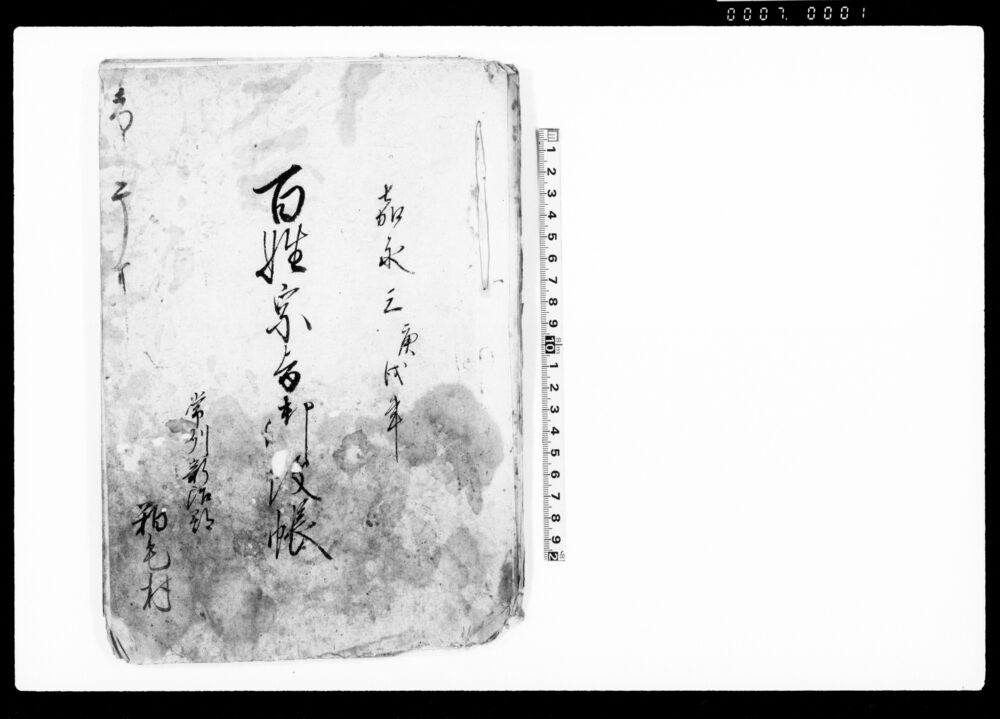 0007. 0001
嘉永三庚戌年
百姓宗旨御改帳
常州新治郡
粕毛村
1 2 3 4 5 6 7 8 9 10 1 2 3 4 5 6 7 8 9 2